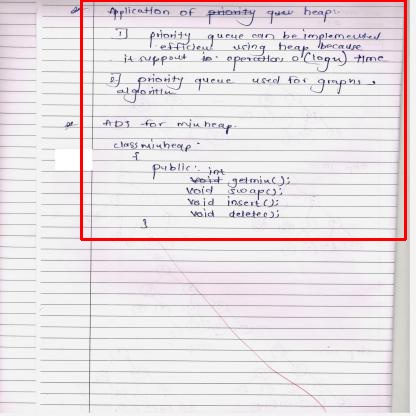 Application of priority que heap:
1] priority queue can be implemented
efficien using heap because
it support to operations O(logn) time
2] priority queue used for graphs
algorithm
ADT for minheap.
class minheap
{
public: int
void getmin();
void swap();
void insert();
void delete();
}